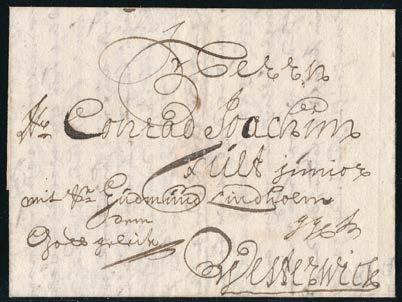 Herrn
Hr Conrad Joachim
Lült junior
mit Hr Gudmund Lindholm
dem
Gott geleite
Westerwick